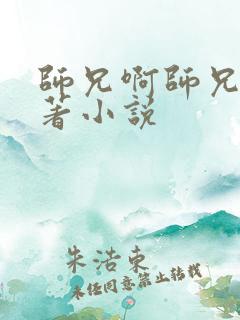 師兄啊師兄
著小説
朱浩東
未经同意禁止转载